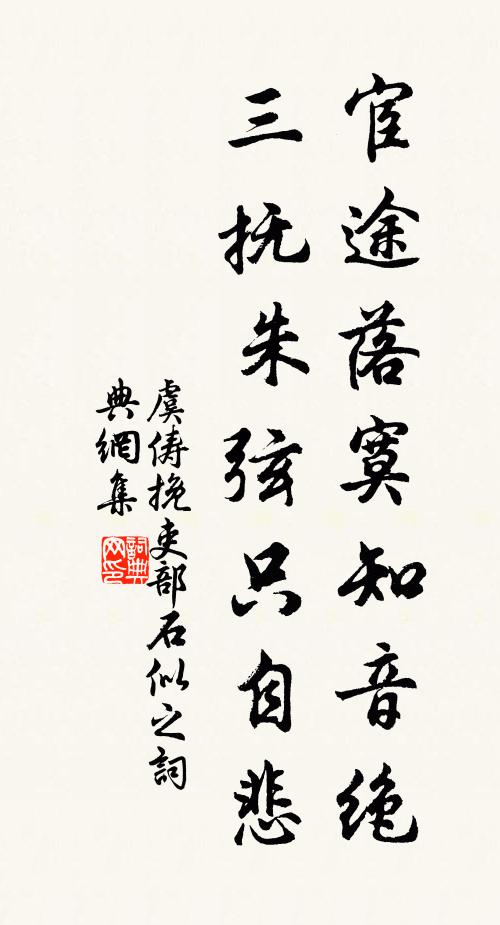 宦途落寞知音绝
三抚朱弦只自悲
虞俦挽吏部石似之詞
典網集
詞典网印